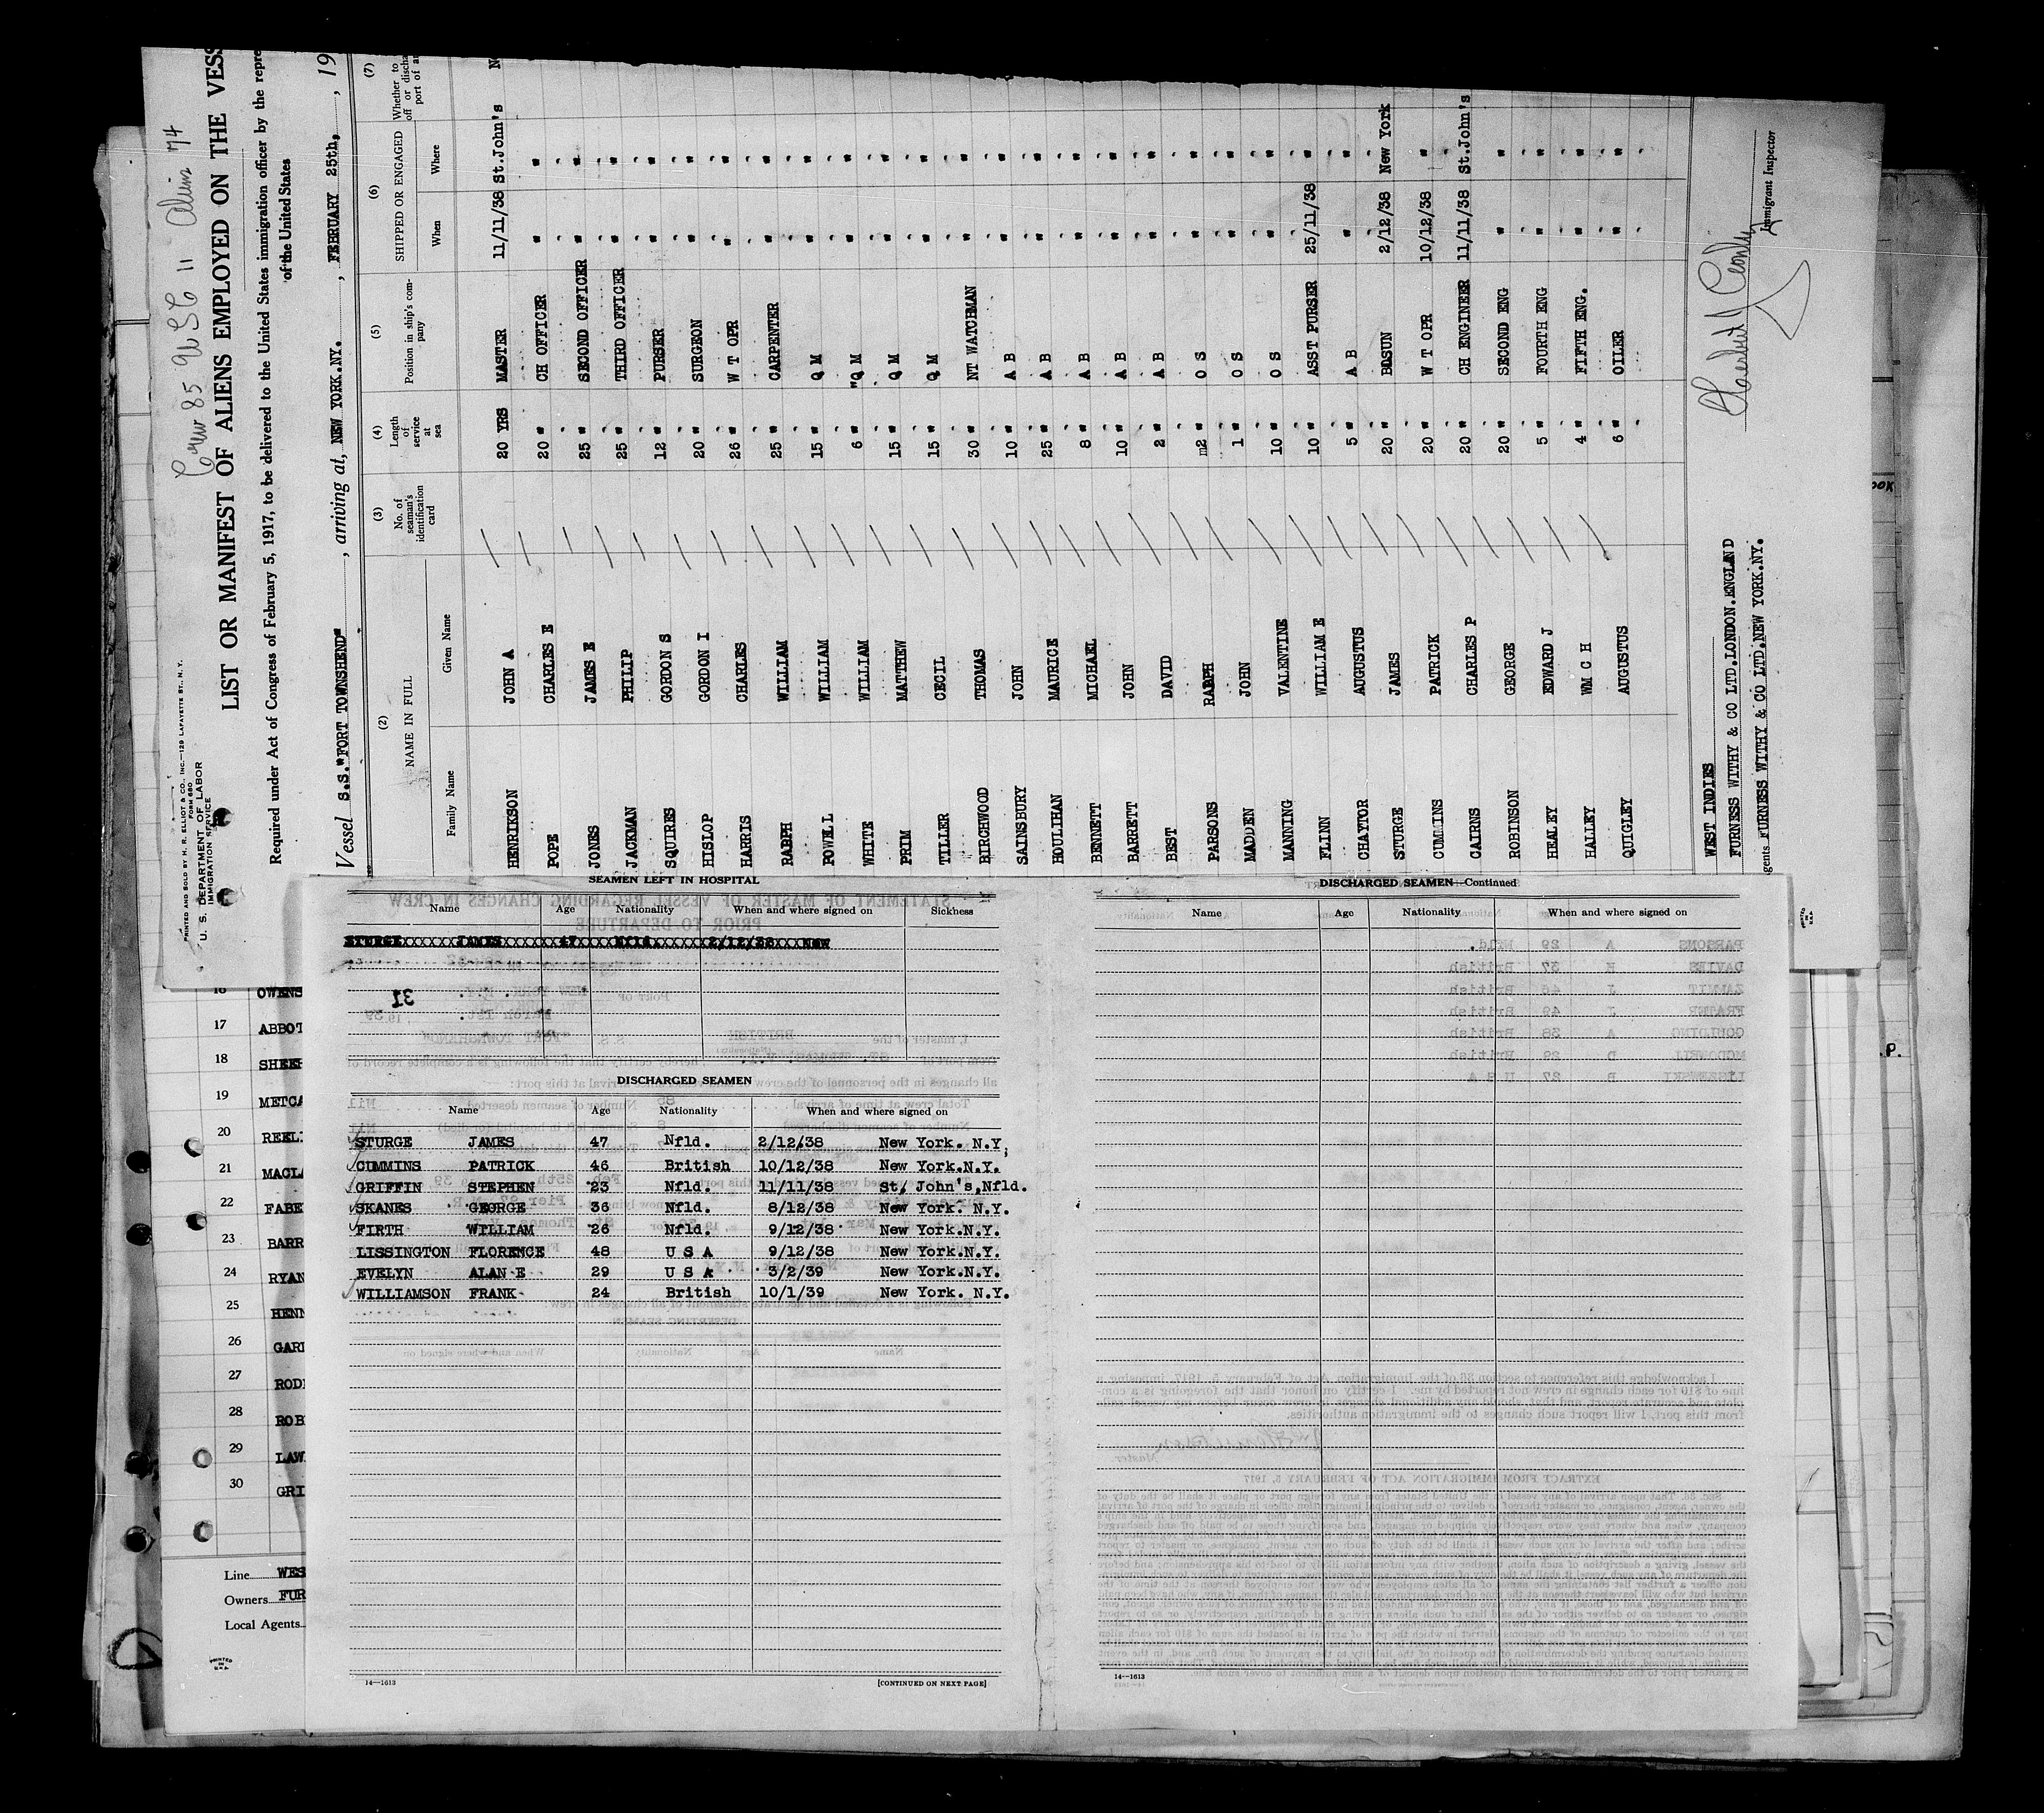 Crew 85 USC 11 Aliens 74
PRINTED AND SOLD BY H. R. ELLIOT & CO., INC.—129 LAFAYETTE ST., N.Y.
FORM 680
U. S. DEPARTMENT OF LABOR
IMMIGRATION SERVICE
LIST OR MANIFEST OF ALIENS EMPLOYED ON THE VESS
Required under Act of Congress of February 5, 1917, to be delivered to the United States immigration officer by the repre
of the United States
Vessel S.S."FORT TOWNSHEND" , arriving at, NEW YORK.NY. , FEBRUARY 25th, , 19
(2) (3) (4) (5) (6) (7)
NAME IN FULL No. of seaman's identification card Length of service at sea Position in ship's company SHIPPED OR ENGAGED Whether to
off or discha
port of ar
Family Name Given Name When Where
HENRIKSON JOHN A 20 YRS MASTER 11/11/38 St.John's
POPE CHARLES E 20 " CH OFFICER " "
JONES JAMES E 25 " SECOND OFFICER " "
JACKMAN PHILIP 25 " THIRD OFFICER " "
SQUIRES GORDON S 12 " PURSER " "
HISLOP GORDON I 20 " SURGEON " "
HARRIS CHARLES 26 " W T OPR " "
RALPH WILLIAM 25 " CARPENTER " "
POWELL WILLIAM 15 " Q M " "
WHITE WILLIAM 6 " "Q M " "
PRIM MATTHEW 15 " Q M " "
TILLER CECIL 15 " Q M " "
BIRCHWOOD THOMAS 30 " NT WATCHMAN " "
SAINSBURY JOHN 10 " A B " "
HOULIHAN MAURICE 25 " A B " "
BENNETT MICHAEL 8 " A B " "
BARRETT JOHN 10 " A B " "
BEST DAVID 2 " A B " "
PARSONS RALPH 2 " O S " "
MADDEN JOHN 1 " O S " "
MANNING VALENTINE 10 " O S " "
FLINN WILLIAM E 10 " ASST PURSER 25/11/38 "
CHAYTOR AUGUSTUS 5 " A B " "
STURGE JAMES 20 " BOSUN 2/12/38 New York
CUMMINS PATRICK 20 " W T OPR 10/12/38 "
CAIRNS CHARLES P 20 " CH ENGINEER 11/11/38 St.John's
ROBINSON GEORGE 20 " SECOND ENG " "
HEALEY EDWARD J 5 " FOURTH ENG " "
HALLEY WM C H 4 " FIFTH ENG. " "
QUIGLEY AUGUSTUS 6 " OILER " "
WEST INDIES
FURNESS WITHY & CO LTD.LONDON.ENGLAND
Agents FURNESS WITHY & CO LTD.NEW YORK.NY.
Immigrant Inspector
SEAMEN LEFT IN HOSPITAL
Name Age Nationality When and where signed on Sickness
STURGE JAMES 47 Nfld. 2/12/38 NEW
31
DISCHARGED SEAMEN
Name Age Nationality When and where signed on
STURGE JAMES 47 Nfld. 2/12/38 New York. N.Y.
CUMMINS PATRICK 46 British 10/12/38 New York.N.Y.
GRIFFIN STEPHEN 23 Nfld. 11/11/38 St. John's,Nfld.
SKANES GEORGE 36 Nfld. 8/12/38 New York. N.Y.
FIRTH WILLIAM 26 Nfld. 9/12/38 New York.N.Y.
LISSINGTON FLORENCE 48 U S A 9/12/38 New York.N.Y.
EVELYN ALAN E 29 U S A 3/2/39 New York.N.Y.
WILLIAMSON FRANK 24 British 10/1/39 New York. N.Y.
14—1613 [CONTINUED ON NEXT PAGE]
DISCHARGED SEAMEN—Continued
Name Age Nationality When and where signed on
14—1613
16 OWENS
17 ABBOT
18 SHEEH
19 METCA
20 REELI
21 MACLA
22 FABE
23 BARR
24 RYAN
25 HENN
26 GARL
27 RODI
28 ROB
29 LAW
30 GRI
Line WES
Owners FUR
Local Agents
PRINTED
IN
U.S.A.